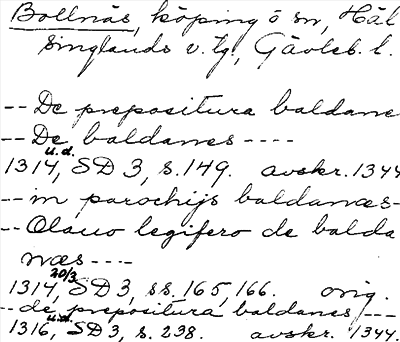 Bollnäs, köping o sn, Häl
singlands v. tg, Gävleb. l.
-- De prepositura baldanes
-- De baldanes ----
u.d.
1314, SD 3, s. 149. avskr. 1344
-- in parochijs baldanæs-
-- Olauo legifero de balda
næs ----
20/3
1314, SD 3, ss. 165, 166. orig.
-- de prepositura baldanes ---
u.d.
1316, SD 3, s. 238. avskr. 1344.